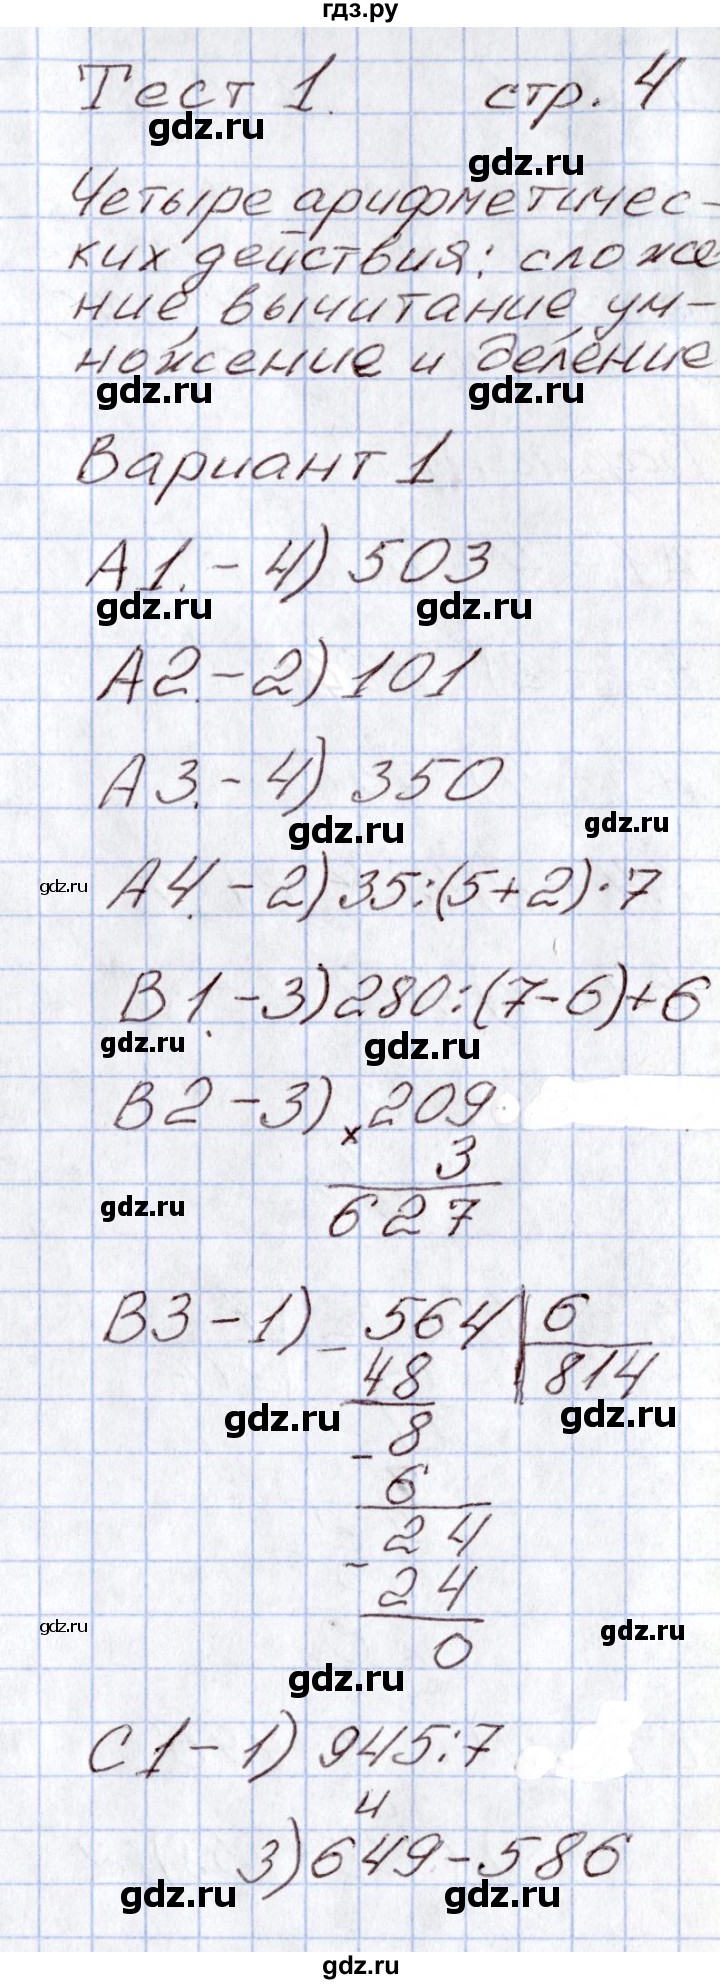 гдз.ру
Тест 1. стр. 4
gdz.ru
gdz.ru
Четыре арифметичес-
ких действия: сложе
ние, вычитание ум-
ножение и деление
gdz.ru gdz.ru
Вариант 1
А1. - 4) 503
gdz.ru gdz.ru
А2. - 2) 101
А3. - 4) 350
gdz.ru gdz.ru
gdz.ru А4. - 2) 35:(5+2)·7
В1. - 3) 280:(7-6)+6
gdz.ru gdz.ru
В2 - 3) × 209
3
gdz.ru 627
В3 - 1) - 564 6
48 814
gdz.ru gdz.ru
- 8
6
- 24
24
gdz.ru 0 gdz.ru
gdz.ru
С1 - 1) 945:7
4
3) 649-586
gdz.ru gdz.ru
gdz.ru